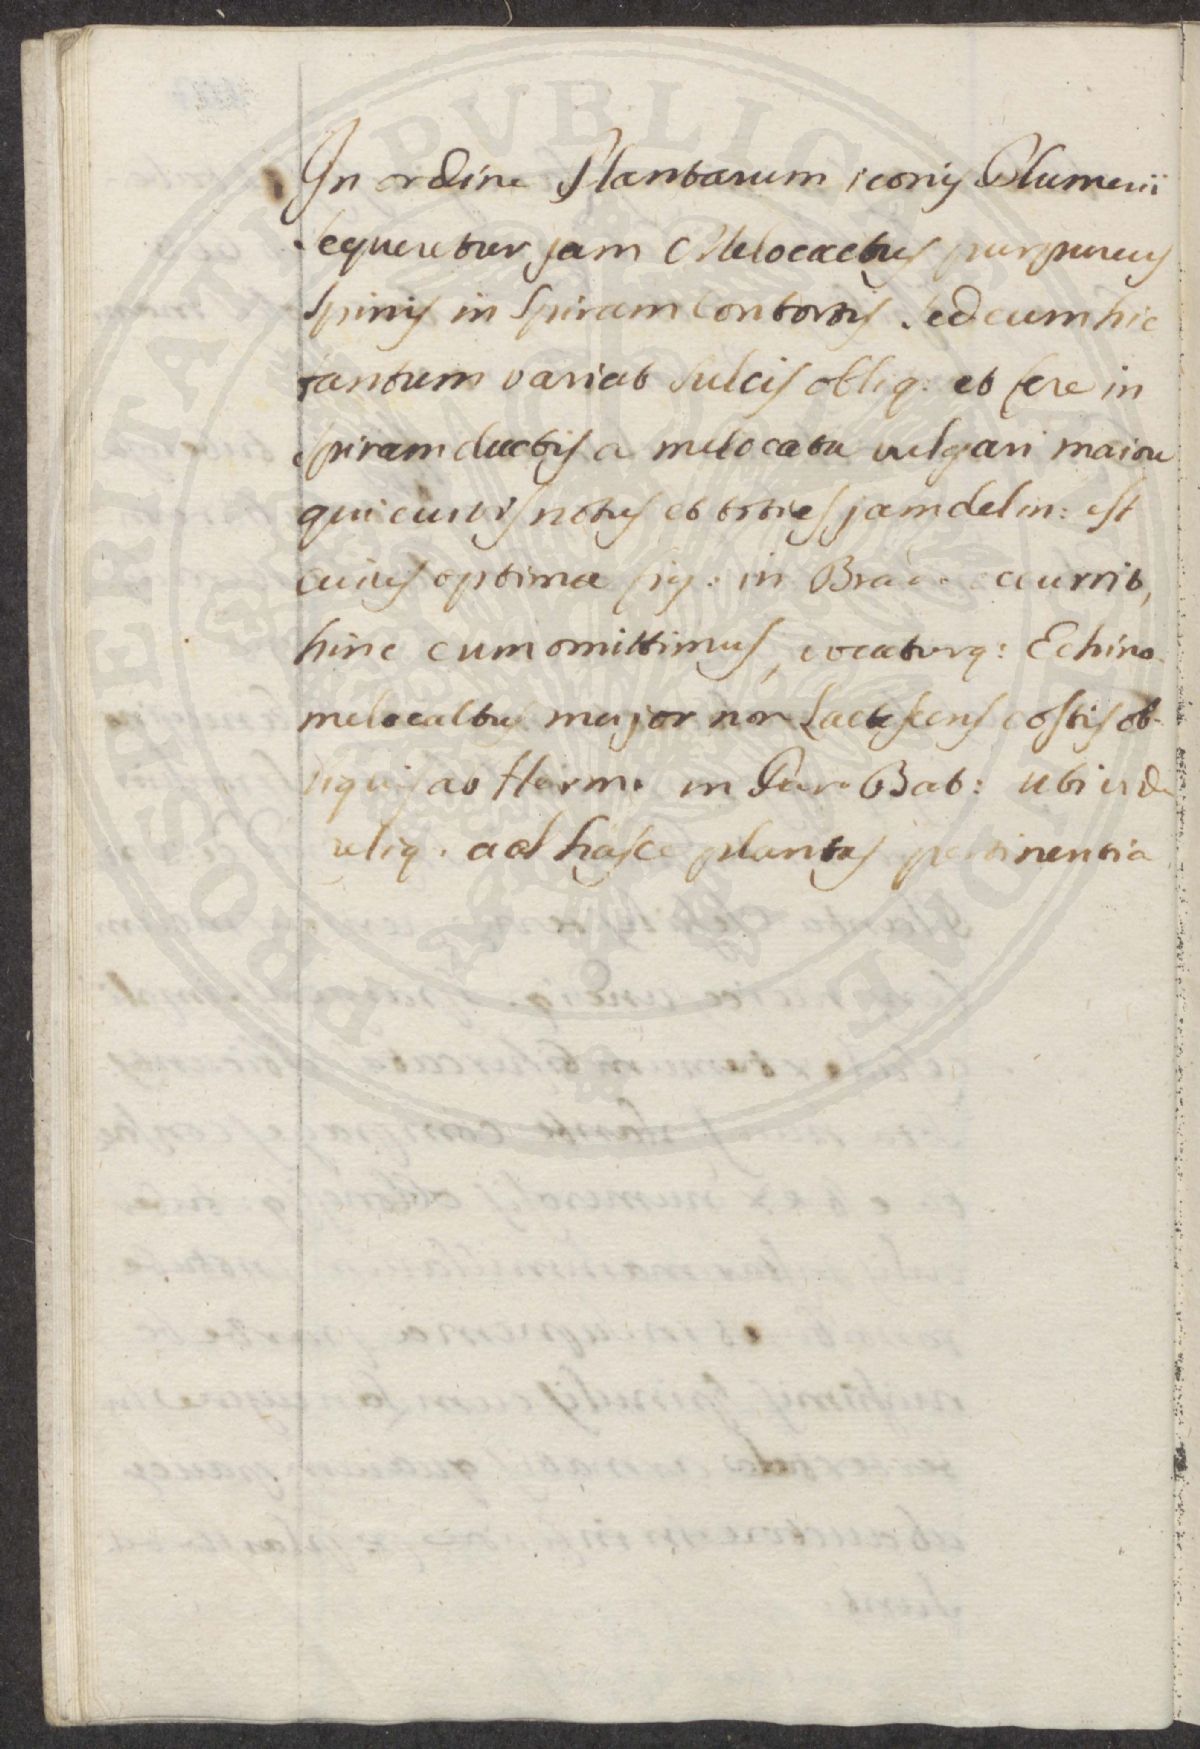 In ordine Plantarum iconis Plumerii
sequeretur jam Melocactus purpureus
spinis in spiram contortis. sed cum hic
tantum variat sulcis obliq: et fere in
spiram ductis a melocatu vulgari maiore
qui curtis notus et toties jam delin: est
cuius optima fig: in Brad. occurrit,
hinc cum omittimus, vocaturq: Echino
melocaltus major non Lactescens costis ob-
liquis ab Herm. in Par. Bat: ubi vide
reliq. ad hasce plantas pertinentia
PROSPERITATI PUBLICAE